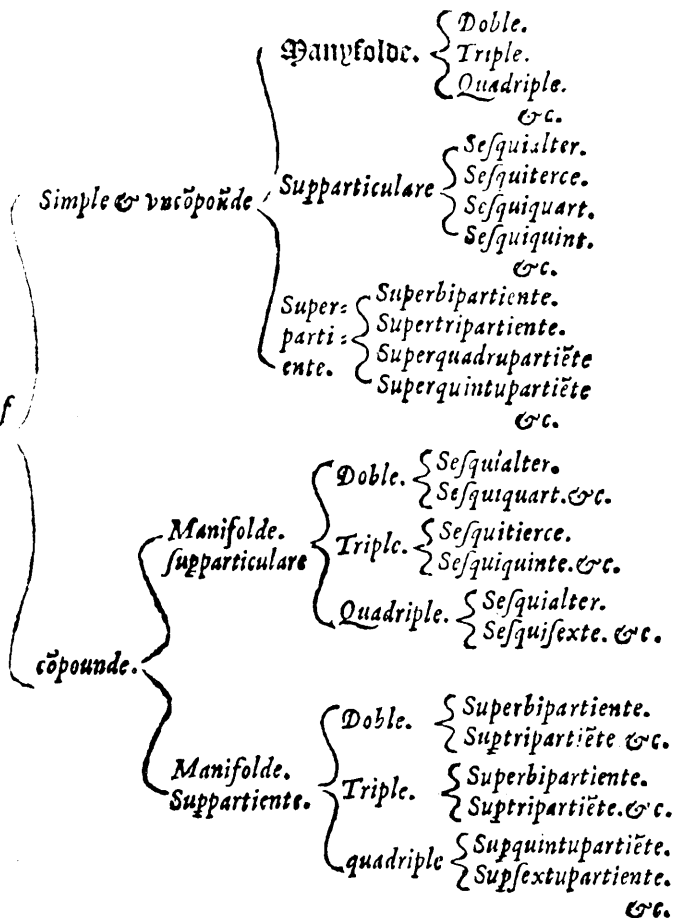 Manyfolde.
Doble.
Triple.
Quadriple.
&c.
Simple & vncõpoñde
Supparticulare
Seſquialter.
Seſquiterce.
Seſquiquart.
Seſquiquint.
&c.
Super=
parti=
ente.
Superbipartiente.
Supertripartiente.
Superquadrupartiẽte
Superquintupartiẽte
&c.
f
cõpounde.
Manifolde.
ſupparticulare
Doble.
Seſquialter.
Seſquiquart.&c.
Triple.
Seſquitierce.
Seſquiquinte.&c.
Quadriple.
Seſquialter.
Seſquiſexte. &c.
Manifolde.
Suppartiente.
Doble.
Superbipartiente.
Suptripartiẽte &c.
Triple.
Superbipartiente.
Suptripartiẽte.&c.
quadriple
Supquintupartiẽte.
Supſextupartiente.
&c.